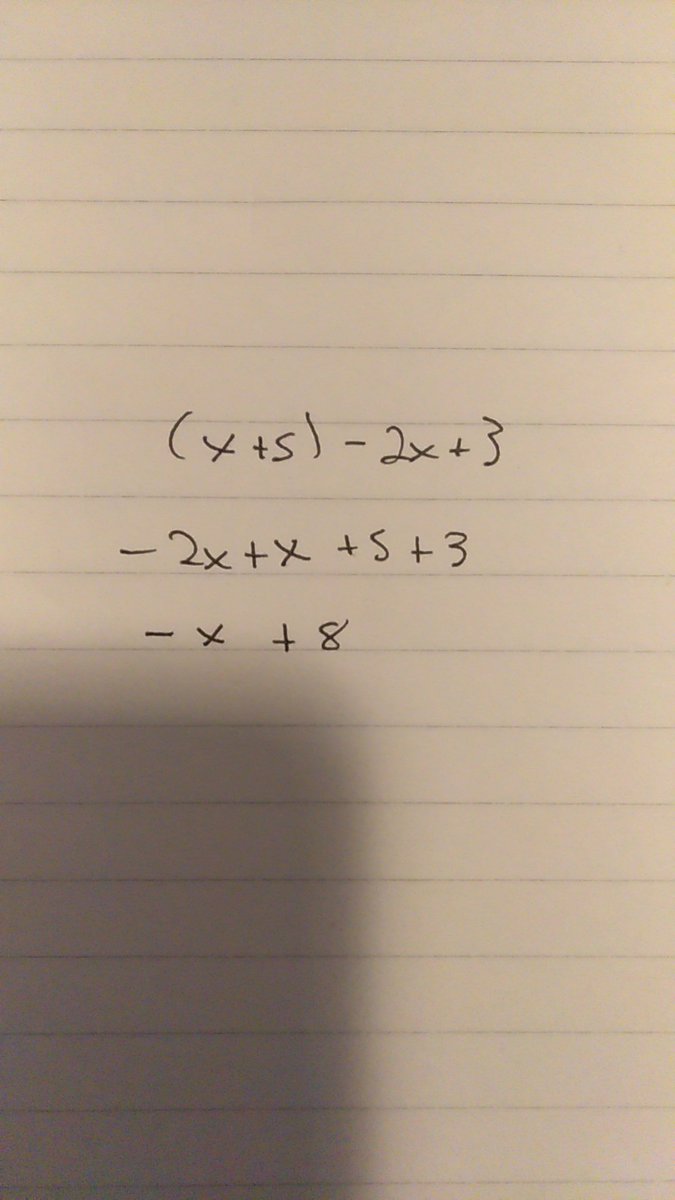 (x+5) - 2x+3
- 2x+x +5+3
- x + 8